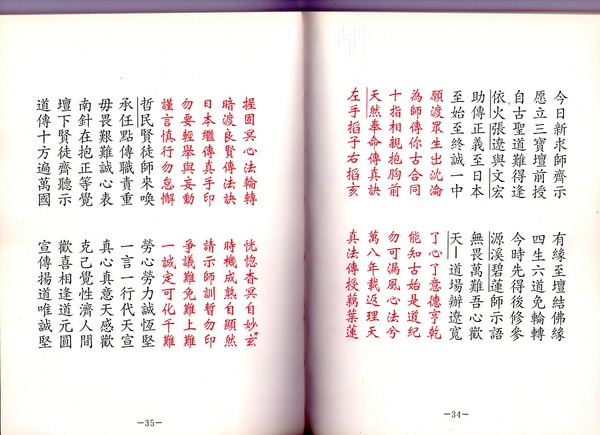 今日新求師齊示　有緣至壇結佛緣
愿立三寶壇前授　四生六道免輪轉
自古聖道難得逢　今時先得後修參
依火張遼與文宏　源溪碧蓮師示語
助傳正義至日本　無畏萬難吾心歡
至始至終誠一中　天一道場辦遼寬
願渡眾生出沈淪　了心了意德亨乾
為師傳你古合同　能知古始是道紀
十指相親抱胸前　勿可漏風心法兮
天然奉命傳真訣　萬八年載返理天
左手搯子右搯亥　真法傳授藕葉蓮
-34-
握固冥心法輪轉　恍惚杳冥自妙玄
暗渡良賢傳法訣　時機成熟自顯然
日本繼傳真手印　請示師訓暫勿印
勿要輕舉與妄動　爭議難免難上難
謹言慎行勿怠懈　一誠定可化千難
哲民賢徒師來喚　勞心勞力誠恆堅
承任點傳職責重　一言一行代天宣
毋畏艱難誠心表　真心真意天感歡
南針在抱正等覺　克己覺性濟人間
壇下賢徒齊聽示　歡喜相逢道元圓
道傳十方遍萬國　宣傳揚道唯誠堅
-35-